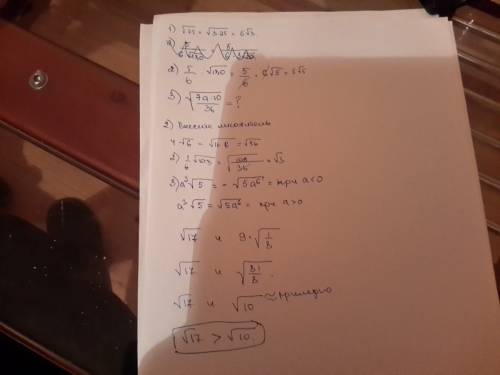 1) √75 = √3·25 = 5√3
2) 5/6 √180 = 5/6 · 6√5 = 5√5
3) √(7a·10/36) = ?
2) Внесите множитель
4√6 = √16·6 = √96
3) a³√5 = - √5a⁶ = при a<0
a³√5 = √5a⁶ = при a>0
√17 и 9·√(1/8)
√17 и √(81/8)
√17 и √10 ≈ примерно
√17 > √10